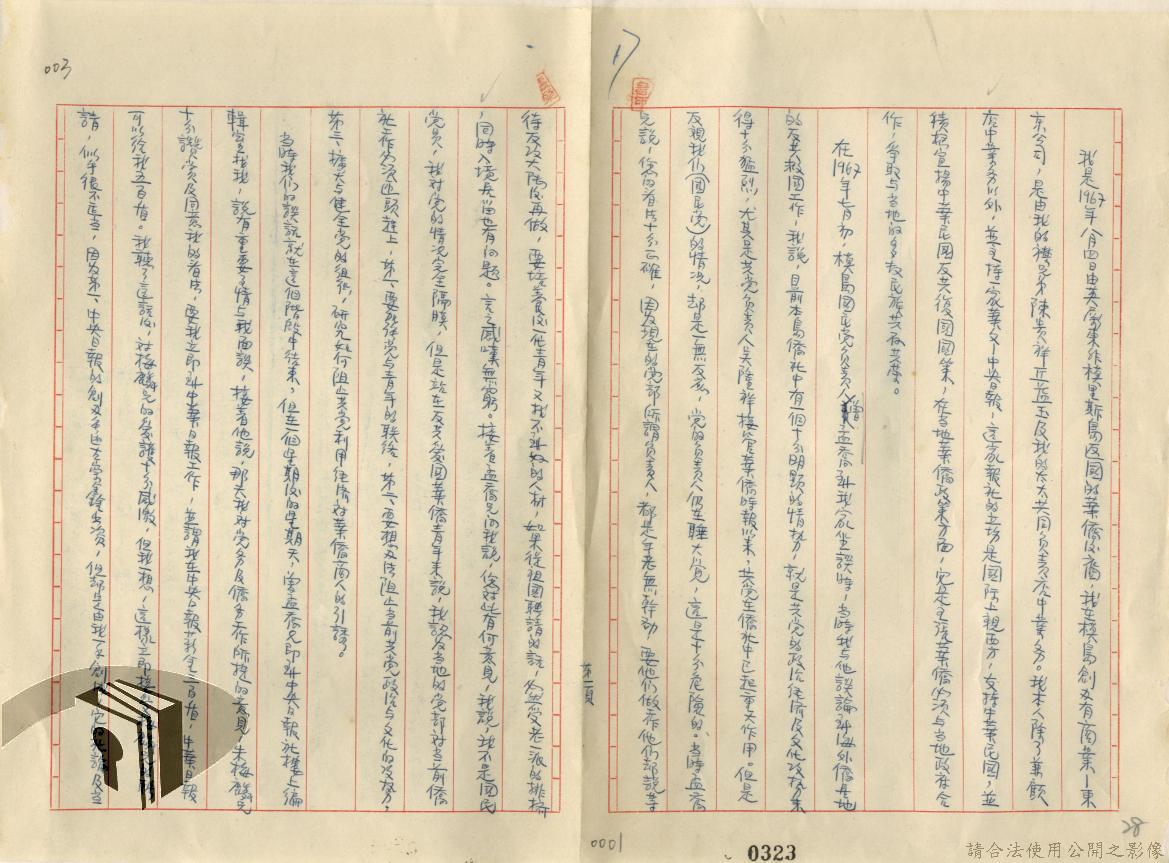 我是1967年八月四日由英屬東非模里斯島返國的華僑後裔，我在模島創立有商業—東
東公司，是由我的襟兄弟陳貴祥丘益玉及我的太太共同負責店中業務。我本人除了兼顧
店中業務以外，並主持一家華文中央日報，這家報社的立場是國際上親西方，支持中華民國，並
積極宣揚中華民國反共復國國策，在當地華僑政策方面，它是主張華僑必須與當地政府合
作，爭取與當地的多友民族共存共榮。
在1967年七月初，模島國民黨負責人曾孟喬到我家坐談時，當時我與他談論到海外僑居地
的反共救國工作，我說，目前本島僑社中有一個十分明顯的情勢，就是共黨的政治經濟及文化攻勢來
得十分猛烈，尤其是共黨負責人吳隆祥接管華僑時報以來，共黨在僑社中已起重大作用。但是
反觀我們（國民黨）的情況，却是一無反應，黨的負責人仍在睡大覺，這是十分危險的。當時孟喬
兄說，你的看法十分正確，因為現在的黨部所謂負責人，都是年老無幹勁，要他們做工作他們却說等
第一頁
0001
0323
28
17
003
待反攻大陸後再做，要培養後他青年又找不到好的人材，如果從祖國聘請的話，必然受老一派的排擠
，同時入境長留也有問題。言之感嘆無窮。接着孟喬兄問我說，你對此有何意見，我說，我不是國民
黨員，我對黨的情況完全隔膜，但是站在一反共愛國華僑青年來說，我認為當地的黨部對當前僑
社工作必須迎頭趕上，第一要加強黨與青年的聯絡，第二要想辦法阻止當前共黨政治與文化的攻勢。
第三擴大與健全黨的組織，研究如何阻止共黨利用經濟對華僑商人的引誘。
當時我們的談話就在這個階段中結束，但在一個星期後的星期天，曾孟喬兄即到中央日報社樓上編
輯室找我，說有重要事情與我面談，接着他說，那天我對黨務及僑務工作所提的意見，朱梅麟兄
十分讚賞及同意我的看法，要我立即到中華日報工作，並謂我在中央日報薪金二百盾，中華日報
可以給我五百盾。我聽了這話後，對梅麟兄的愛護十分感激，但我一想，這樣立即接
請，似乎很不適當，因為第一、中央日報的創立雖是出資，但却是由我一手創
請合法使用公開之影像